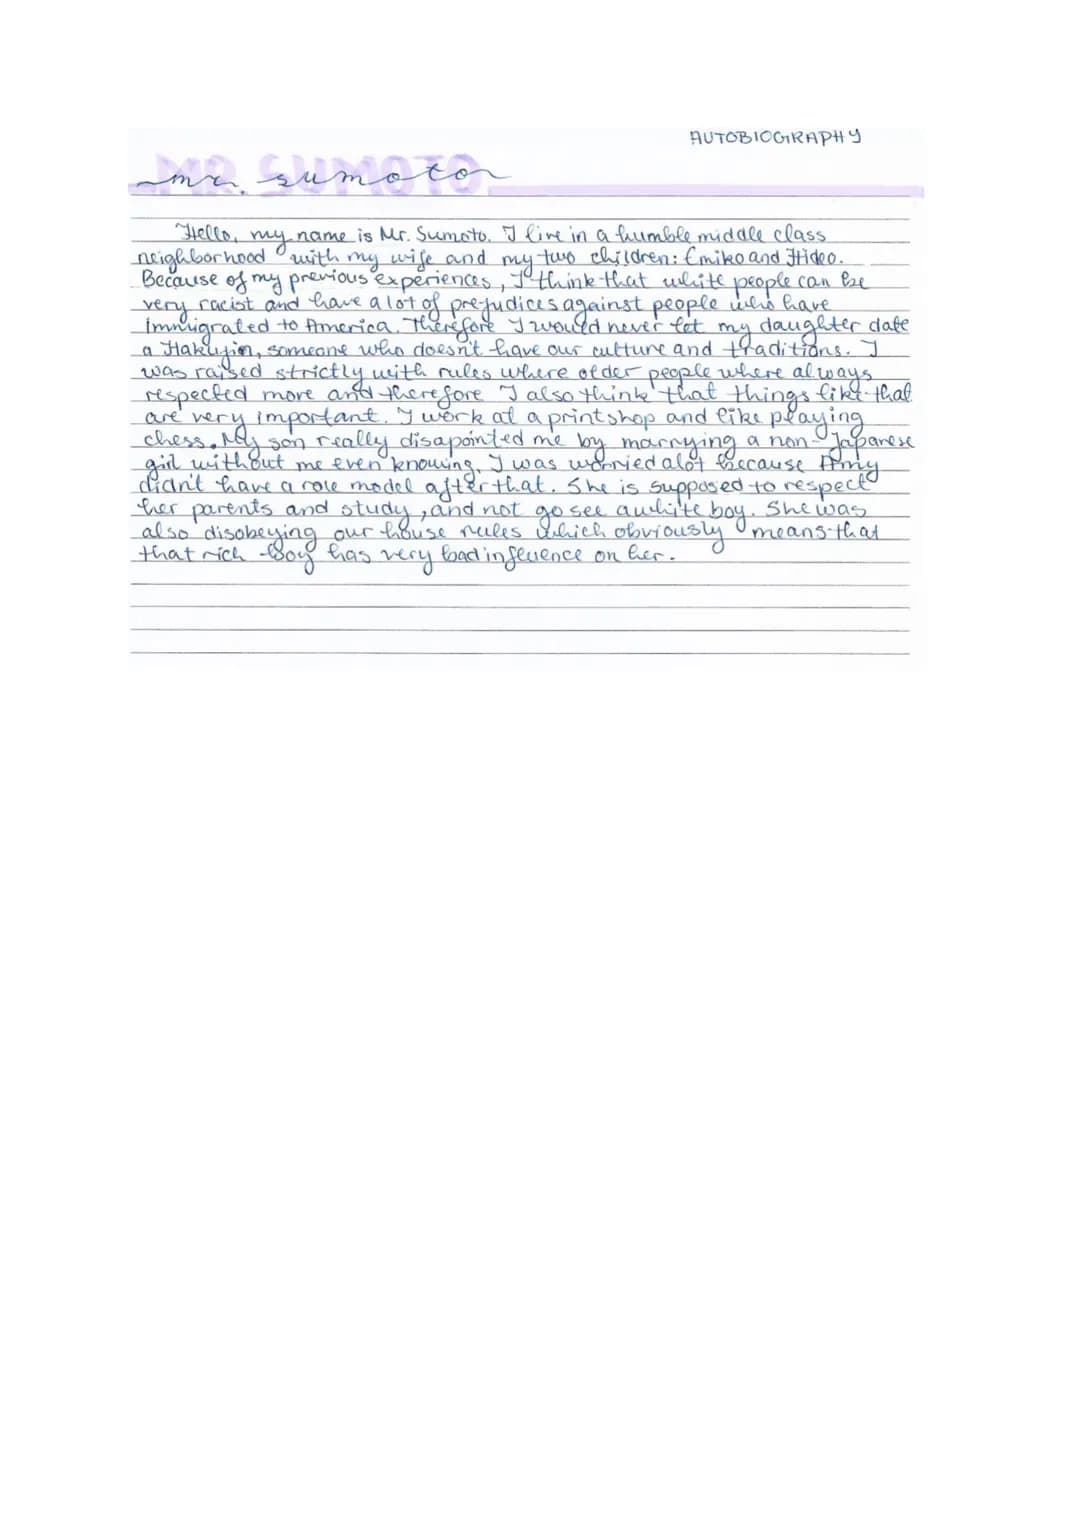 AUTOBIOGRAPHY
MR. SUMOTO
mr. sumoto
Hello, my name is Mr. Sumoto. I live in a humble middle class
neighborhood with my wife and my two children: Emiko and Hideo.
Because of my previous experiences, I think that white people can be
very racist and have a lot of prejudices against people who have
immigrated to America. Therefore I would never let my daughter date
a Hakujin, someone who doesn't have our culture and traditions. I
was raised strictly with rules where older people where always
respected more and therefore I also think that things like that
are very important. I work at a printshop and like playing
chess. My son really disapointed me by marrying a non-Japanese
girl without me even knowing. I was worried alot because Amy
didn't have a role model after that. She is supposed to respect
her parents and study, and not go see a white boy. She was
also disobeying our house rules which obviously means that
that rich boy has very bad influence on her.